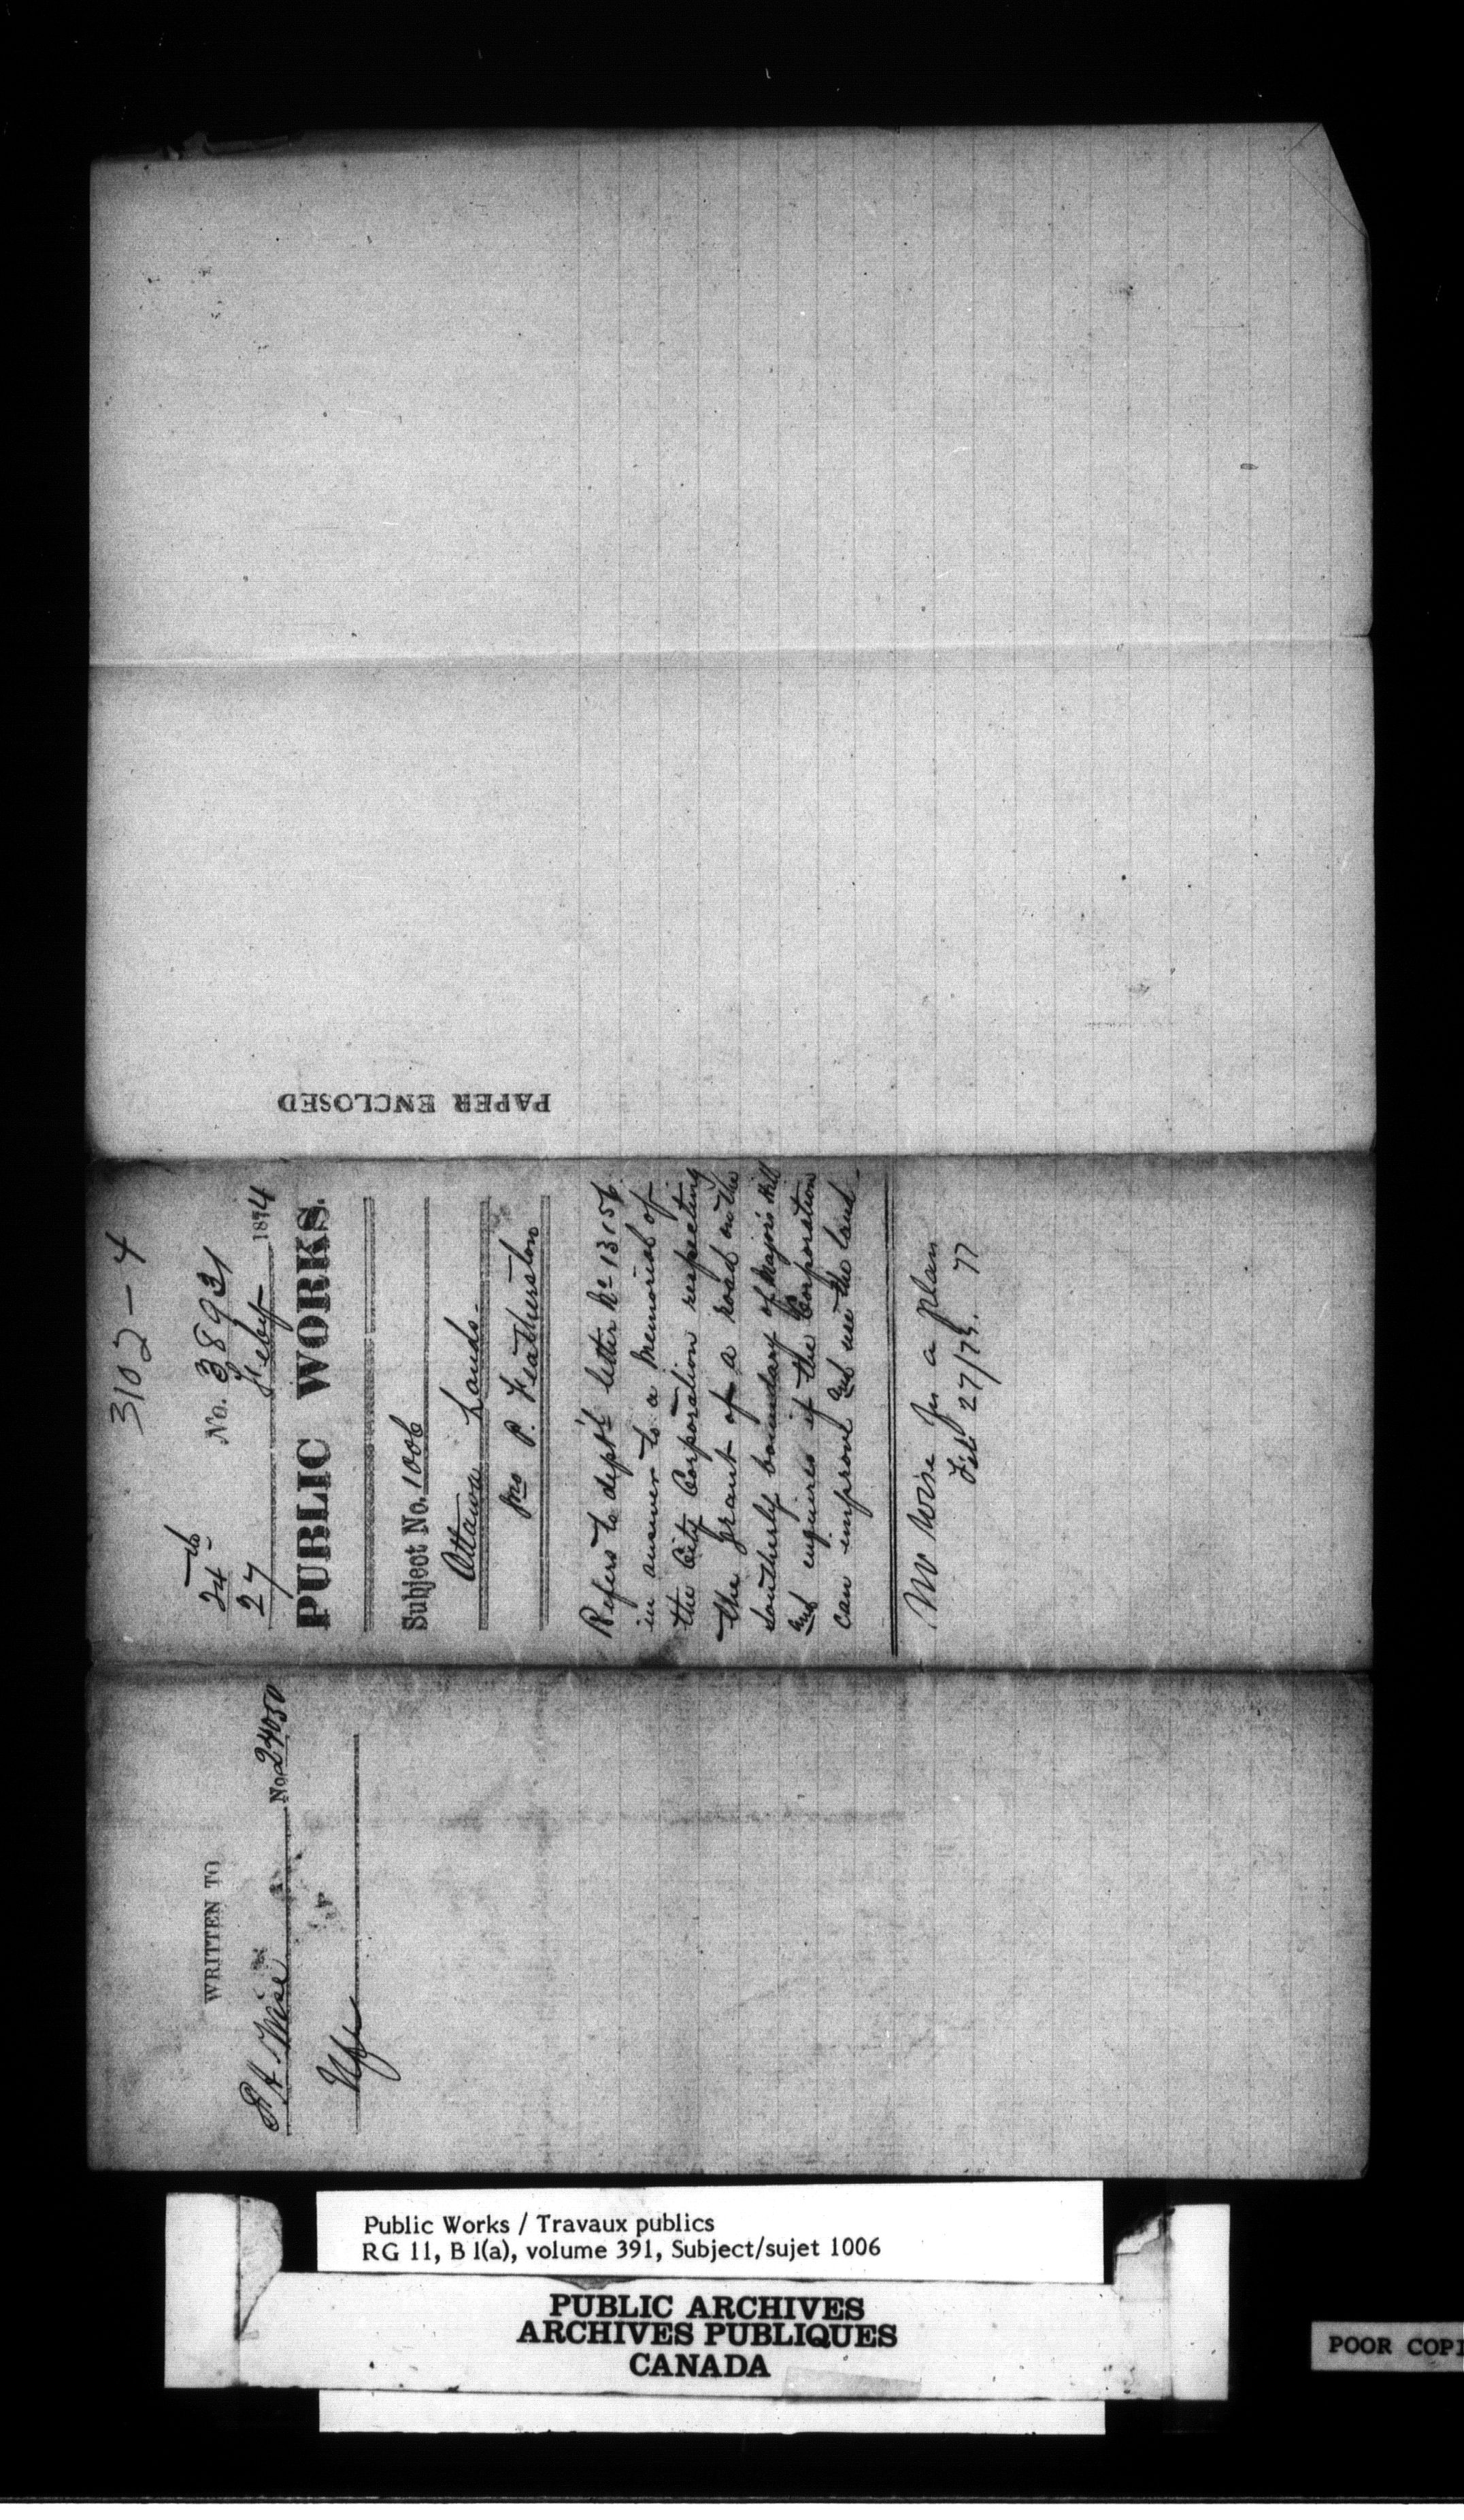 3102-4
24th
No. 38931
27 Feby 1874
PUBLIC WORKS.
Subject No. 1006
Ottawa Lands.
Jno P. Featherston
Refers to dept'l letter No 13156
in answer to a Memorial of
the City Corporation respecting
the grant of a road on the
southerly boundary of Major's Hill
and enquires if the Corporation
can improve and use the land.
Mr Wise for a plan
Feb 27/74.
PAPER ENCLOSED
WRITTEN TO
F H. Wise No. 24050
Public Works / Travaux publics
RG 11, B 1(a), volume 391, Subject/sujet 1006
PUBLIC ARCHIVES
ARCHIVES PUBLIQUES
CANADA
POOR COPY